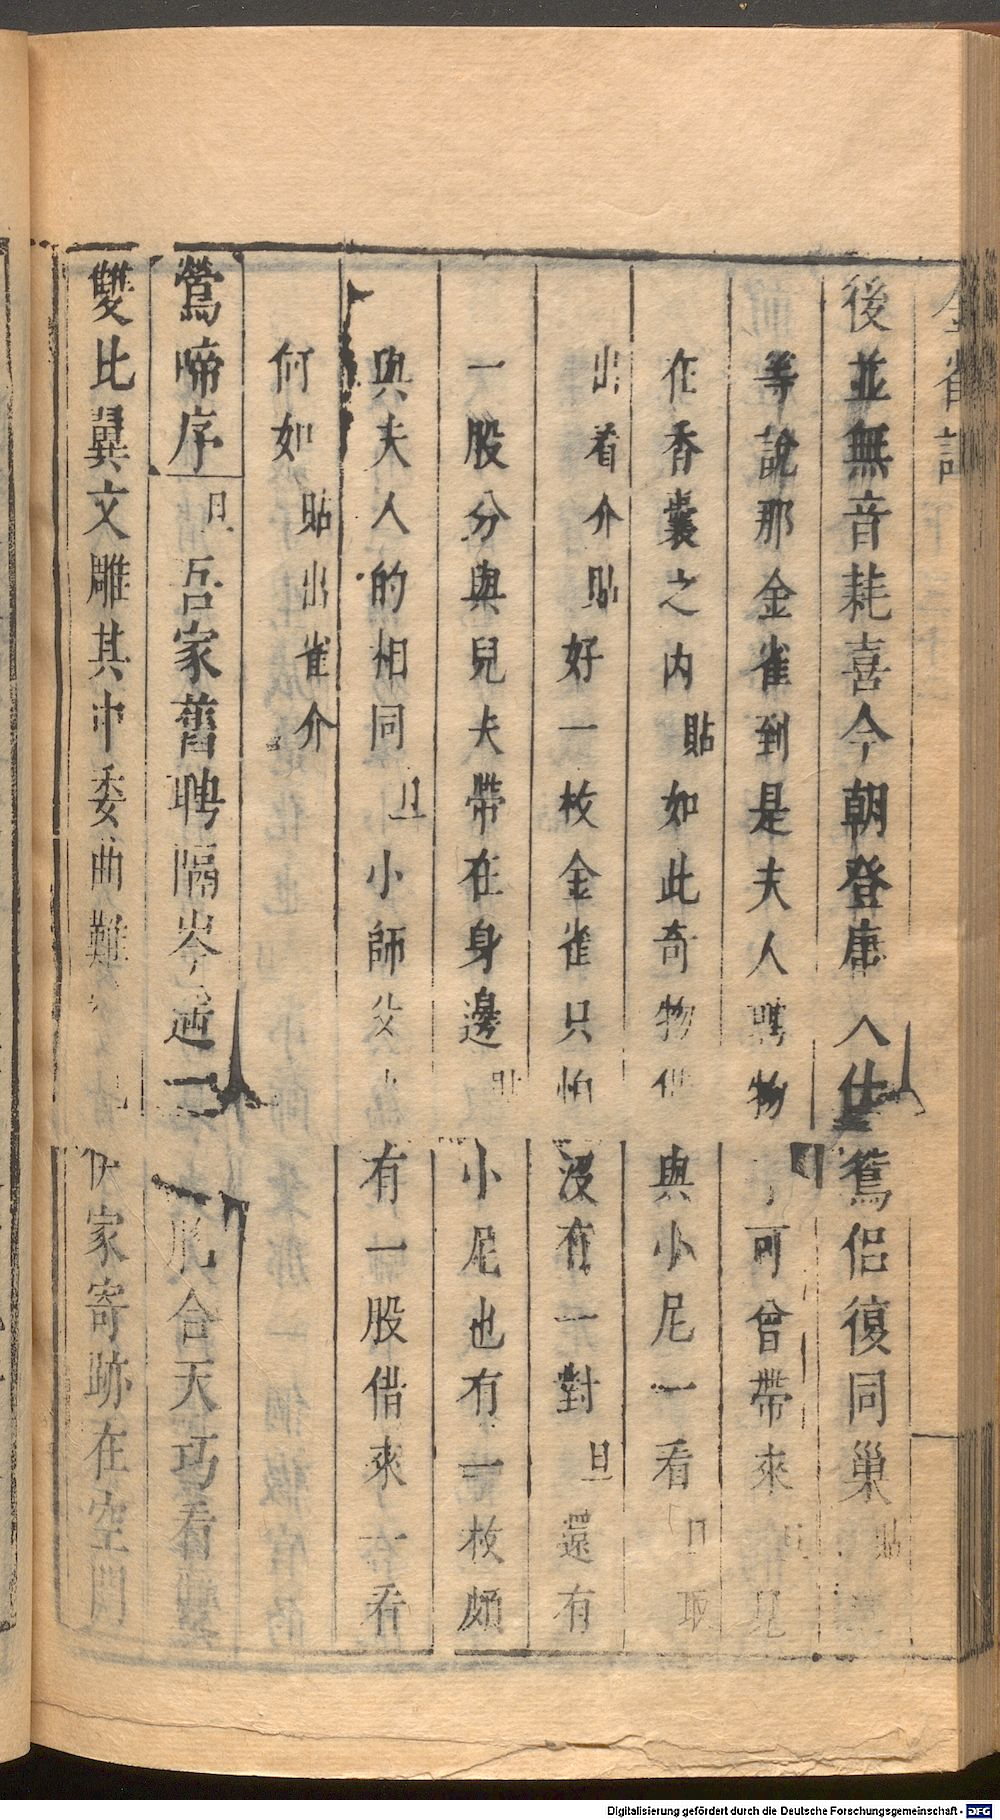 金雀記
後並無音耗喜今朝登庸入仕鴛侶復同巢貼
等說那金雀到是夫人聘物可曾帶來旦見
在香囊之內貼如此奇物借與小尼一看旦取
出看介貼好一枚金雀只怕沒有一對旦還有
一股分與兒夫帶在身邊貼小尼也有一枚頗
與夫人的相同旦小師父有一股借來一看
何如貼出雀介
鶯啼序旦吾家舊聘隔岑遥一股合天巧看
雙比翼文雕其中委曲難家寄跡在空門
Digitalisierung gefördert durch die Deutsche Forschungsgemeinschaft - DFG